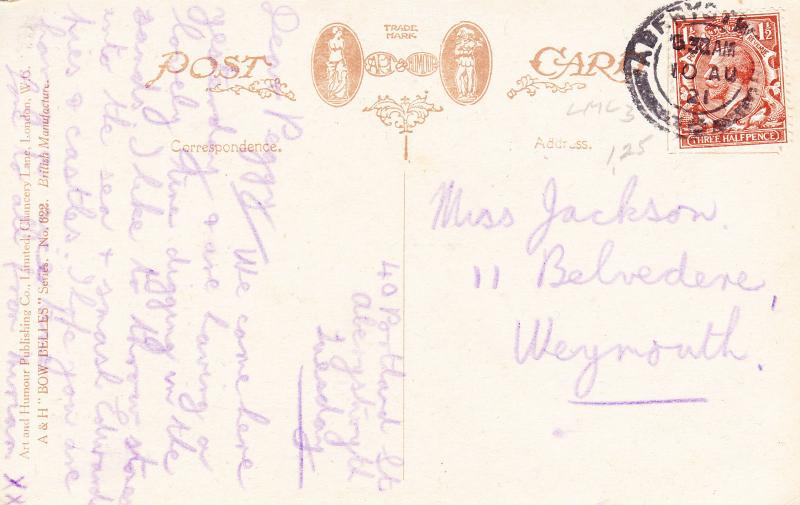 TRADE
MARK.
POST
ART & HUMOUR
CARD
Correspondence.
Address.
ABERYSTWYTH
830AM
10 AU
21
THREE HALFPENCE
LMC 3
1,25
Miss Jackson.
11 Belvedere,
Weymouth.
40 Portland St
Aberystwyth
Tuesday
Dear Peggy
We came here
yesterday & are having a
lovely time digging in the
sands. I like to throw stones
into the sea & smash Edward's
pies & castles. I hope you are
having
love from
xx
Art and Humour Publishing Co., Limited, Chancery Lane, London, W.C.
A & H "BOW BELLES" Series. No. 622. British Manufacture.